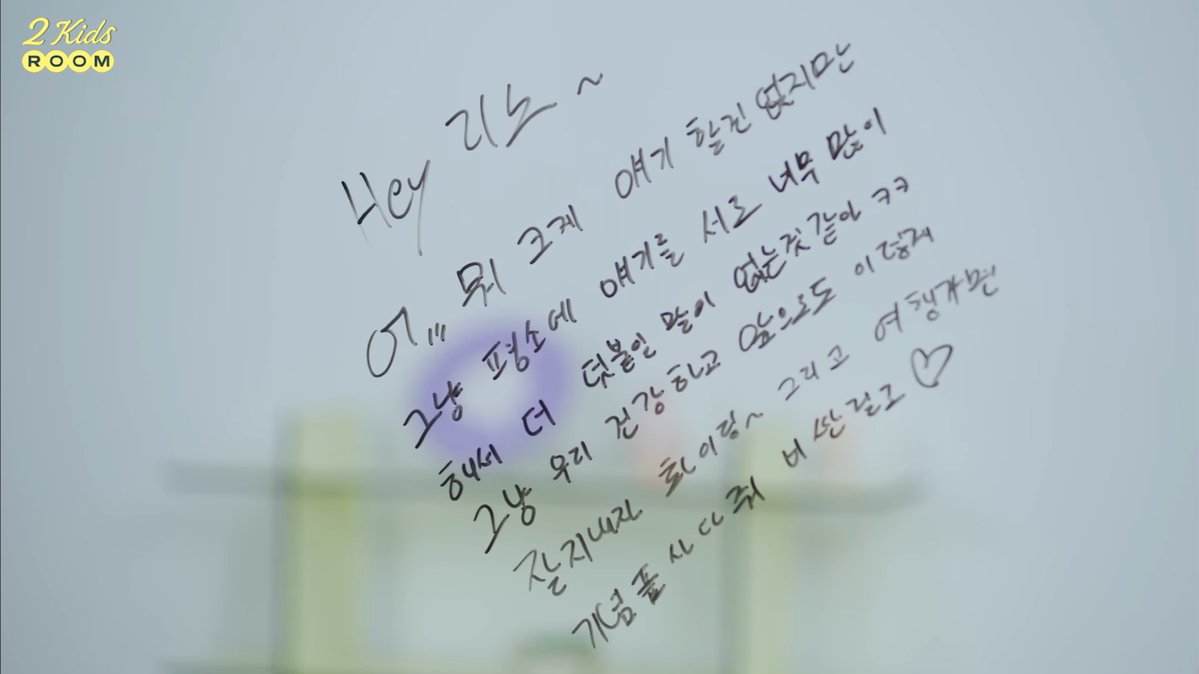 2 Kids
ROOM
Hey 리노 ~
어,,, 뭐 크게 얘기 할건 없지만
그냥 평소에 얘기를 서로 너무 많이
해서 더 덧붙일 말이 없는것 같아 ㅋㅋ
그냥 우리 건강하고 앞으로도 이렇게
잘지내자 화이팅~ 그리고 여행가면
기념품 사다줘 비싼걸로 ♡